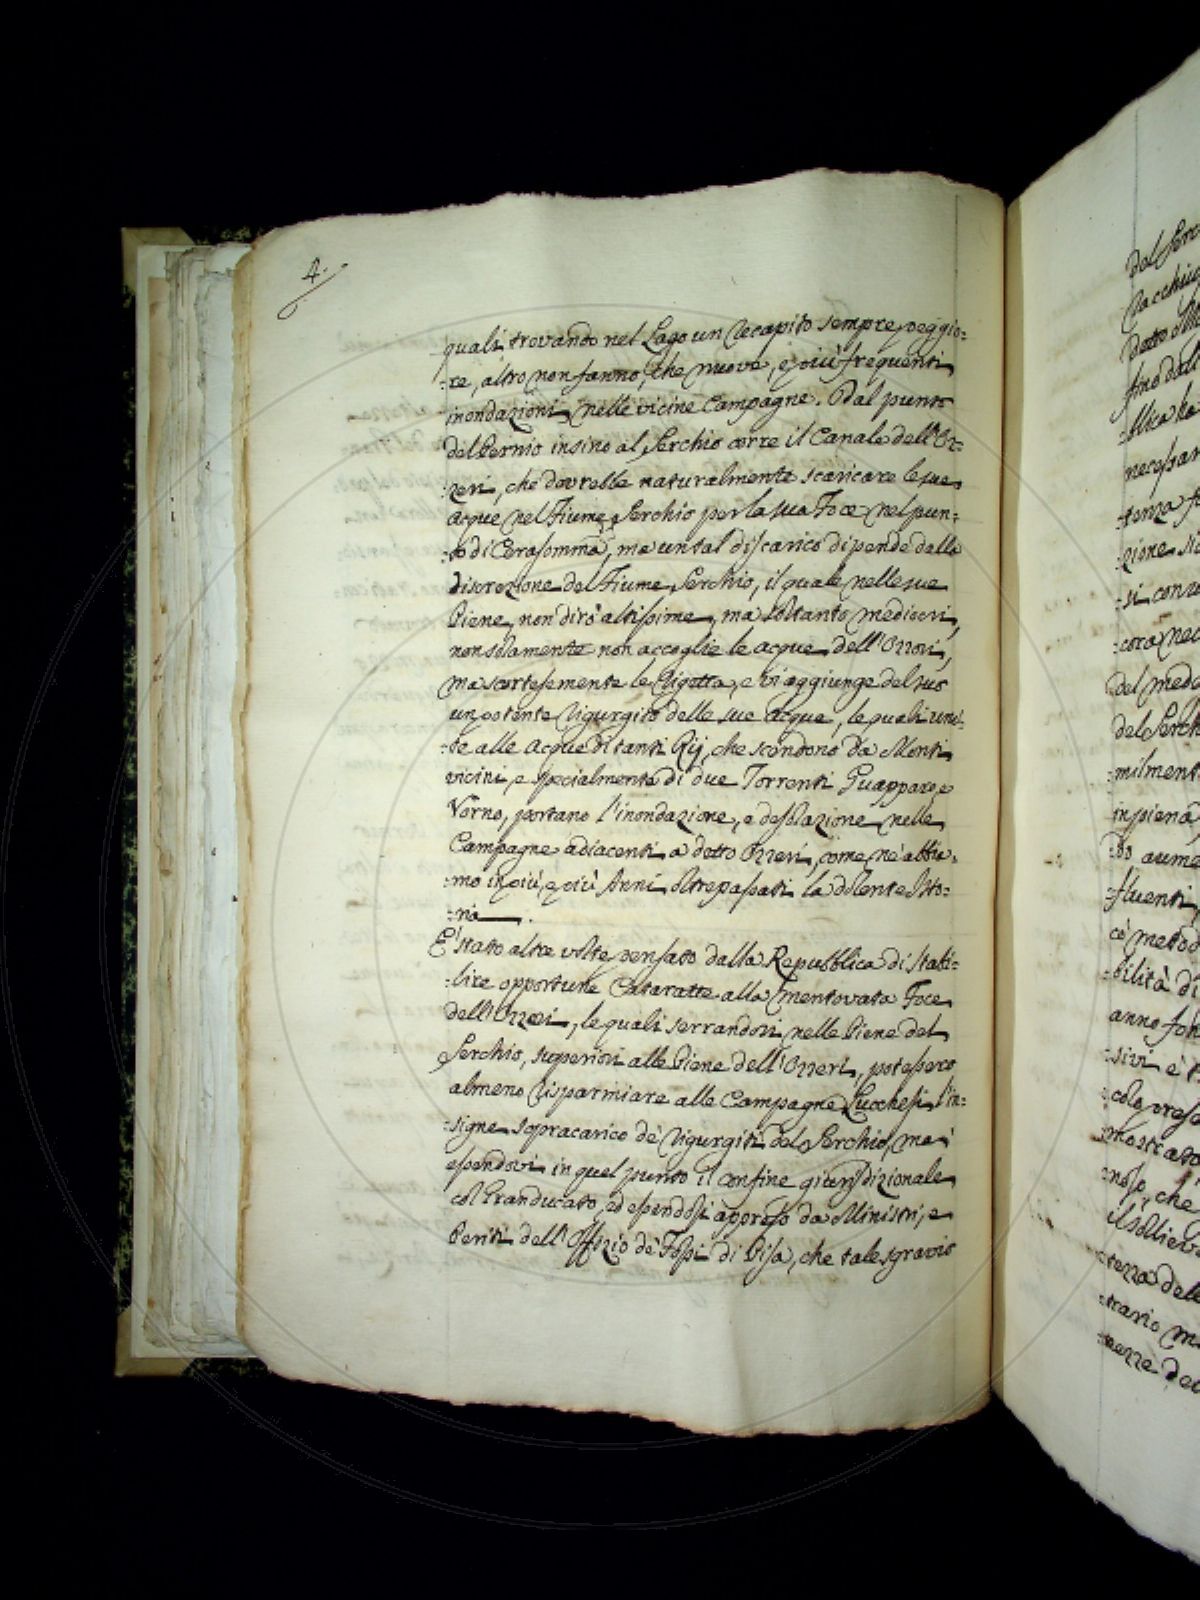 4.
quali, trovando nel Lago un recapito sempre peggio:
:re, altro non fanno, che nuove, e più frequenti
inondazioni nelle vicine Campagne. Dal punto
del Pernio insino al Serchio corre il Canale dell'Oz:
:zeri, che dovrebbe naturalmente scaricare le sue
Acque nel Fiume Serchio per la sua Foce nel pun:
:to di Cerasomma, ma un tal discarico dipende dalla
discrezione del Fiume Serchio, il quale nelle sue
Piene, non dirò altissime, ma soltanto mediocri,
non solamente non accoglie le acque dell'Ozzori,
ma scortesemente le rigetta, e vi aggiunge del suo
un potente rigurgito delle sue acque, le quali uni:
:te alle Acque di tanti Rij, che scendono da Monti
vicini, e specialmente di due Torrenti Guappero, e
Vorno, portano l'inondazione, e desolazione nelle
Campagne adiacenti a detto Ozzeri, come ne abbia:
:mo in più, e più Anni oltrepassati la dolente Isto:
:ria.
E' stato altre volte pensato dalla Repubblica di stabi:
:lire opportune Cataratte alla mentovata Foce
dell'Ozzeri, le quali serrandosi nelle Piene del
Serchio, superiori alle Piene dell'Ozzeri, potessero
almeno risparmiare alle Campagne Lucchesi l'in:
:signe sopracarico de' rigurgiti del Serchio, ma
essendovi in quel punto il confine giurisdizionale
col Granducato, ed essendosi appreso da Ministri, e
Periti dell'Offizio de' Fossi di Pisa, che tale sgravio
del Serc
detto
fino dal
necessar
:tenza
:zione
si conv
:cora nec
del mede
del Serch
:milment
in piena
:do aume
:fluenti
cò metod
:bilità di
anno
:sivi è
:colo prese
mostrato
:noso, che
il sollievo
:tezza dell
:trario
:nezze dec